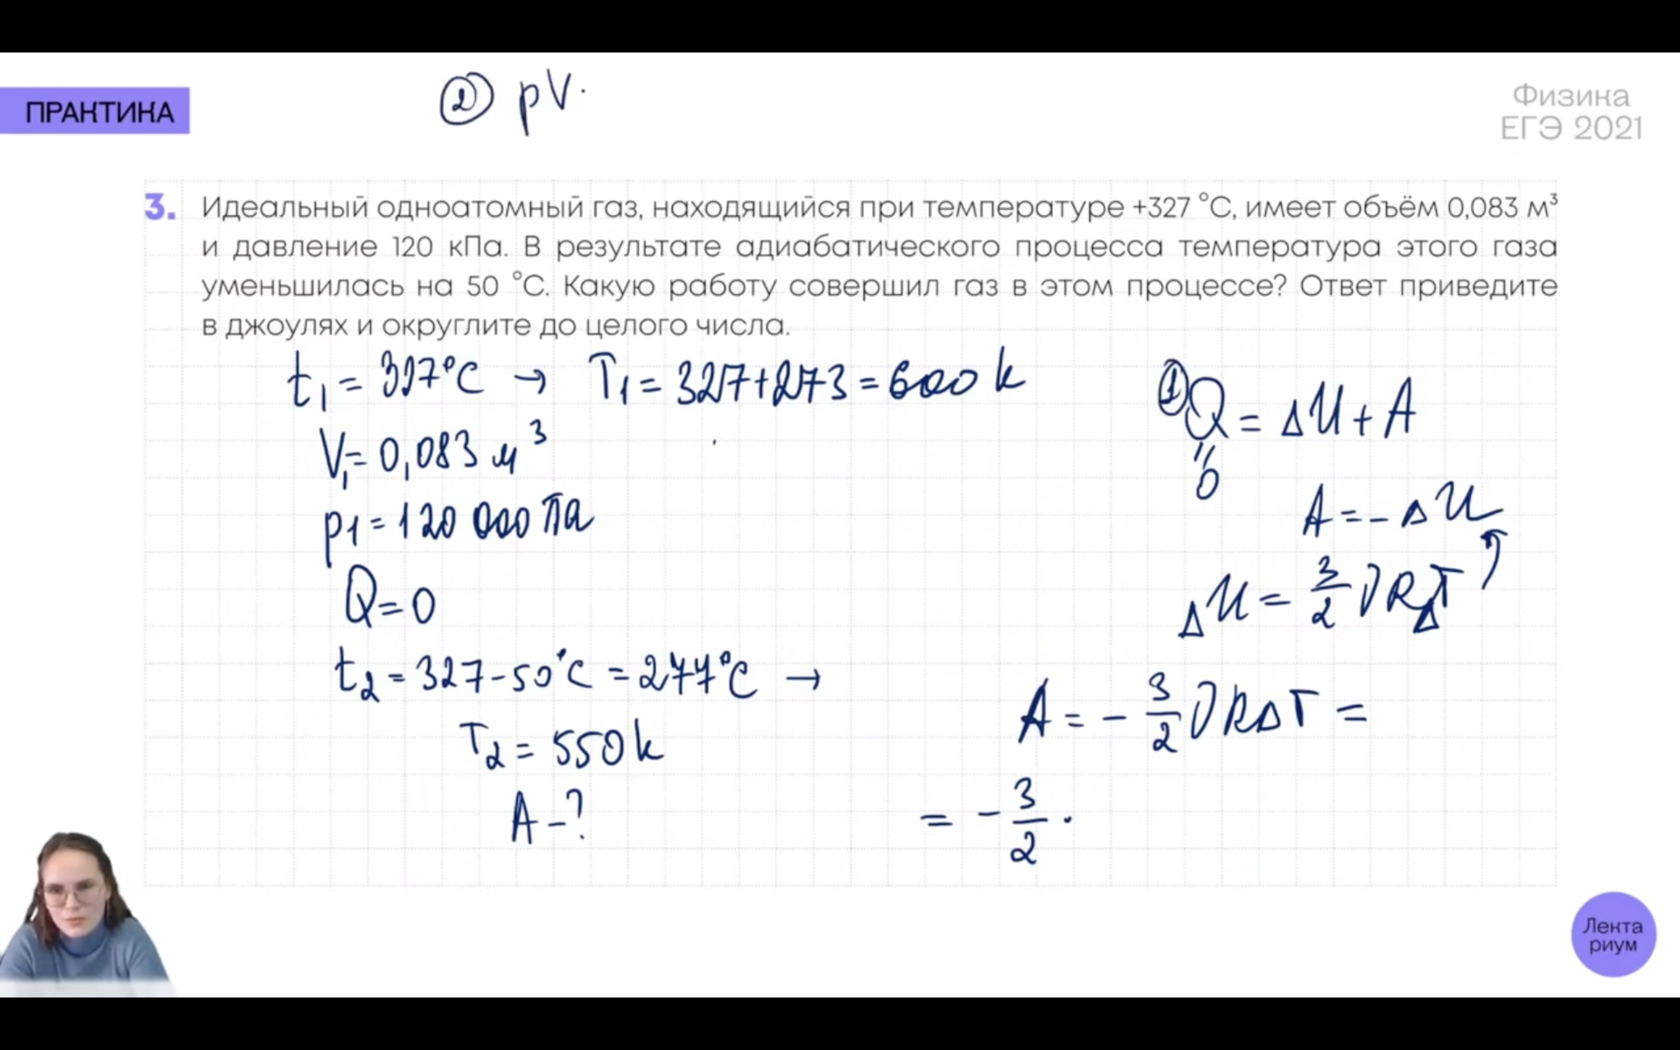 ② pV.
ПРАКТИКА
Физика
ЕГЭ 2021
3. Идеальный одноатомный газ, находящийся при температуре +327 °С, имеет объём 0,083 м³
и давление 120 кПа. В результате адиабатического процесса температура этого газа
уменьшилась на 50 °С. Какую работу совершил газ в этом процессе? Ответ приведите
в джоулях и округлите до целого числа.
t₁ = 327°C → T₁ = 327+273 = 600 k
V₁ = 0,083 м³
p₁ = 120 000 Па
Q = 0
t₂ = 327-50°C = 277°C →
T₂ = 550 k
A - ?
① Q = ΔU + A
"
0
A = - ΔU
ΔU = 3/2 νRΔT
A = - 3/2 νRΔT =
= - 3/2 ·
Лекта
риум